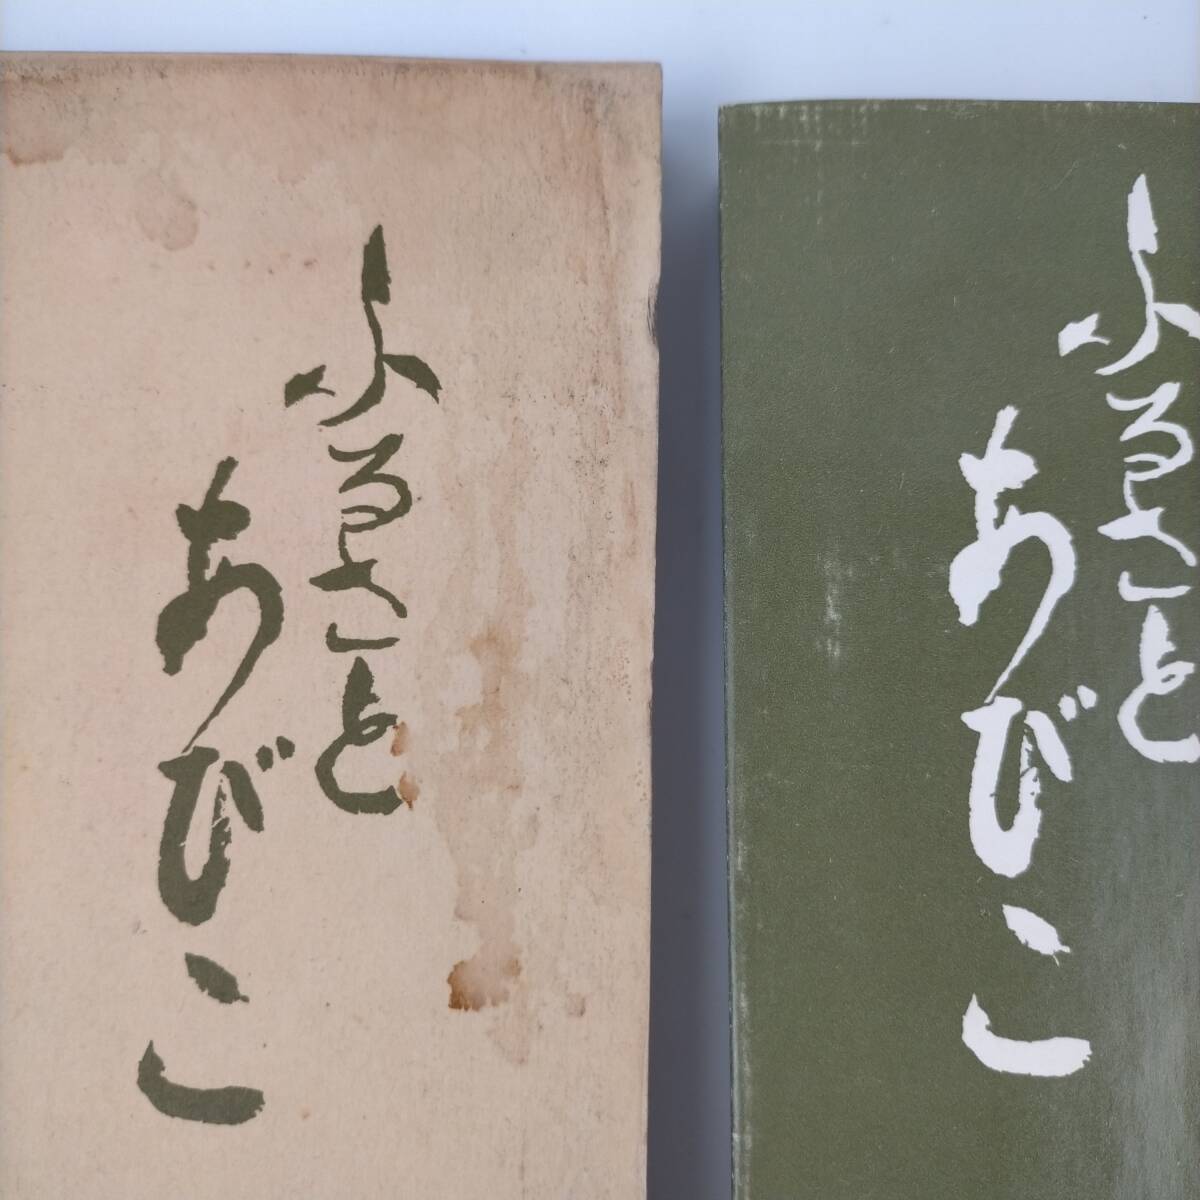 ふるさと
あびこ
ふるさと
あびこ